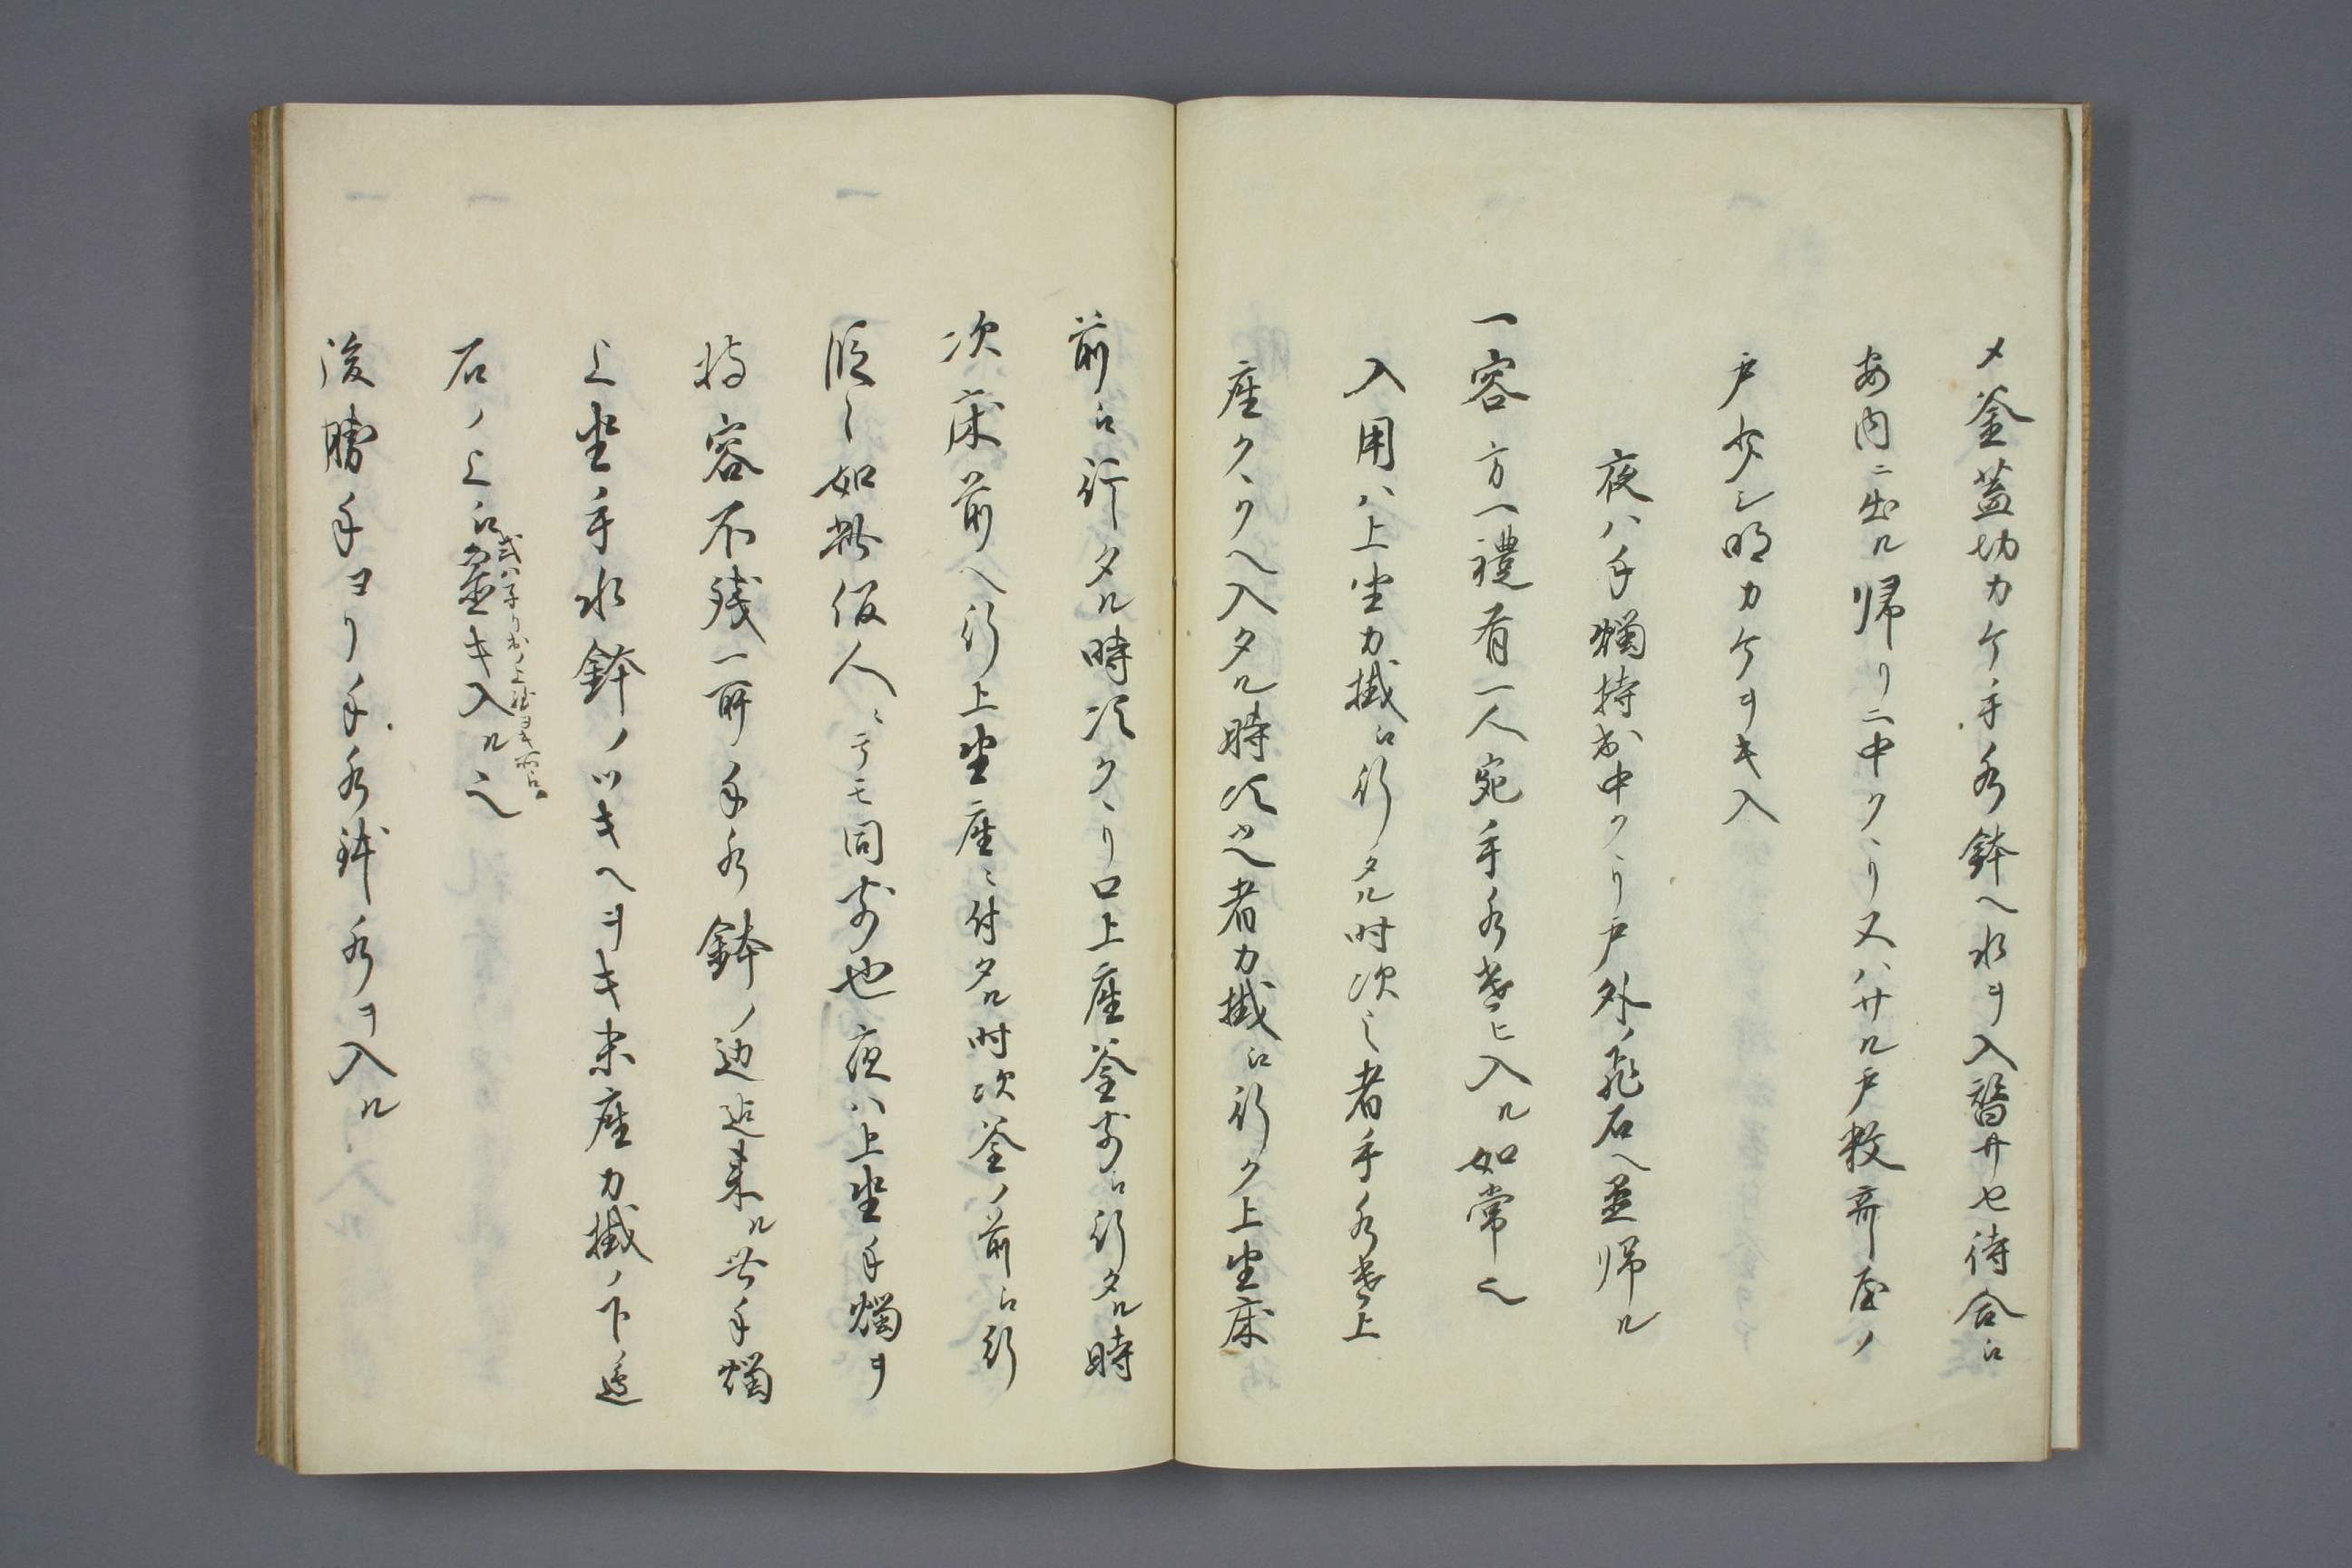 〆釜蓋切カケ手水鉢ヘ水ヲ入替サセ待合江
案内ニ出ル帰リ二中クヽリ又ハサル戸数寄屋ノ
戸少シ明カケヲキ入
夜ハ手燭持出中クヽリ戸外ノ飛石ヘ置帰ル
一客方一禮有一人宛手水遣ヒ入ル如常也
入用ハ上坐刀掛江行タル時次之者手水遣上
座クヽリヘ入タル時次之者刀掛江行ク上坐床
前江行タル時次クヽリ口上座釜前江行タル時
次床前ヘ行上坐座ニ付タル時次釜ノ前江行
段々如此仮人ニテモ同前也夜ハ上坐手燭ヲ
持客不残一所手水鉢ノ辺迄来ル皆手燭
上坐手水鉢ノツキヘヲキ末座刀掛ノ下邊
石ノ上江置キ入ル也
後勝手ヨリ手水鉢水ヲ入ル